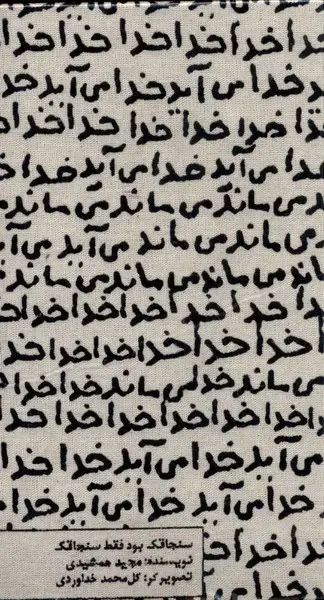 خدا خدا خدا خدا خدا
خدا می آید خدا می آید خدا
خدا خدا خدا خدا خدا
خدا می آید خدا می آید خدا
می ماند می ماند می ماند
می ماند می ماند می آید می آید
ماند می ماند می ماند می ماند
خدا خدا خدا خدا خدا خدا
خدا خدا خدا خدا خدا خدا
می ماند خدا می ماند خدا خدا
خدا خدا خدا خدا خدا خدا
می آید خدا می آید خدا خدا
خدا می آید خدا می آید خدا
خدا خدا
می آید خدا
سنجاقک بود فقط سنجاقک
نویسنده: مجید همشیدی
تصویرگر: گل‌محمد خداوردی